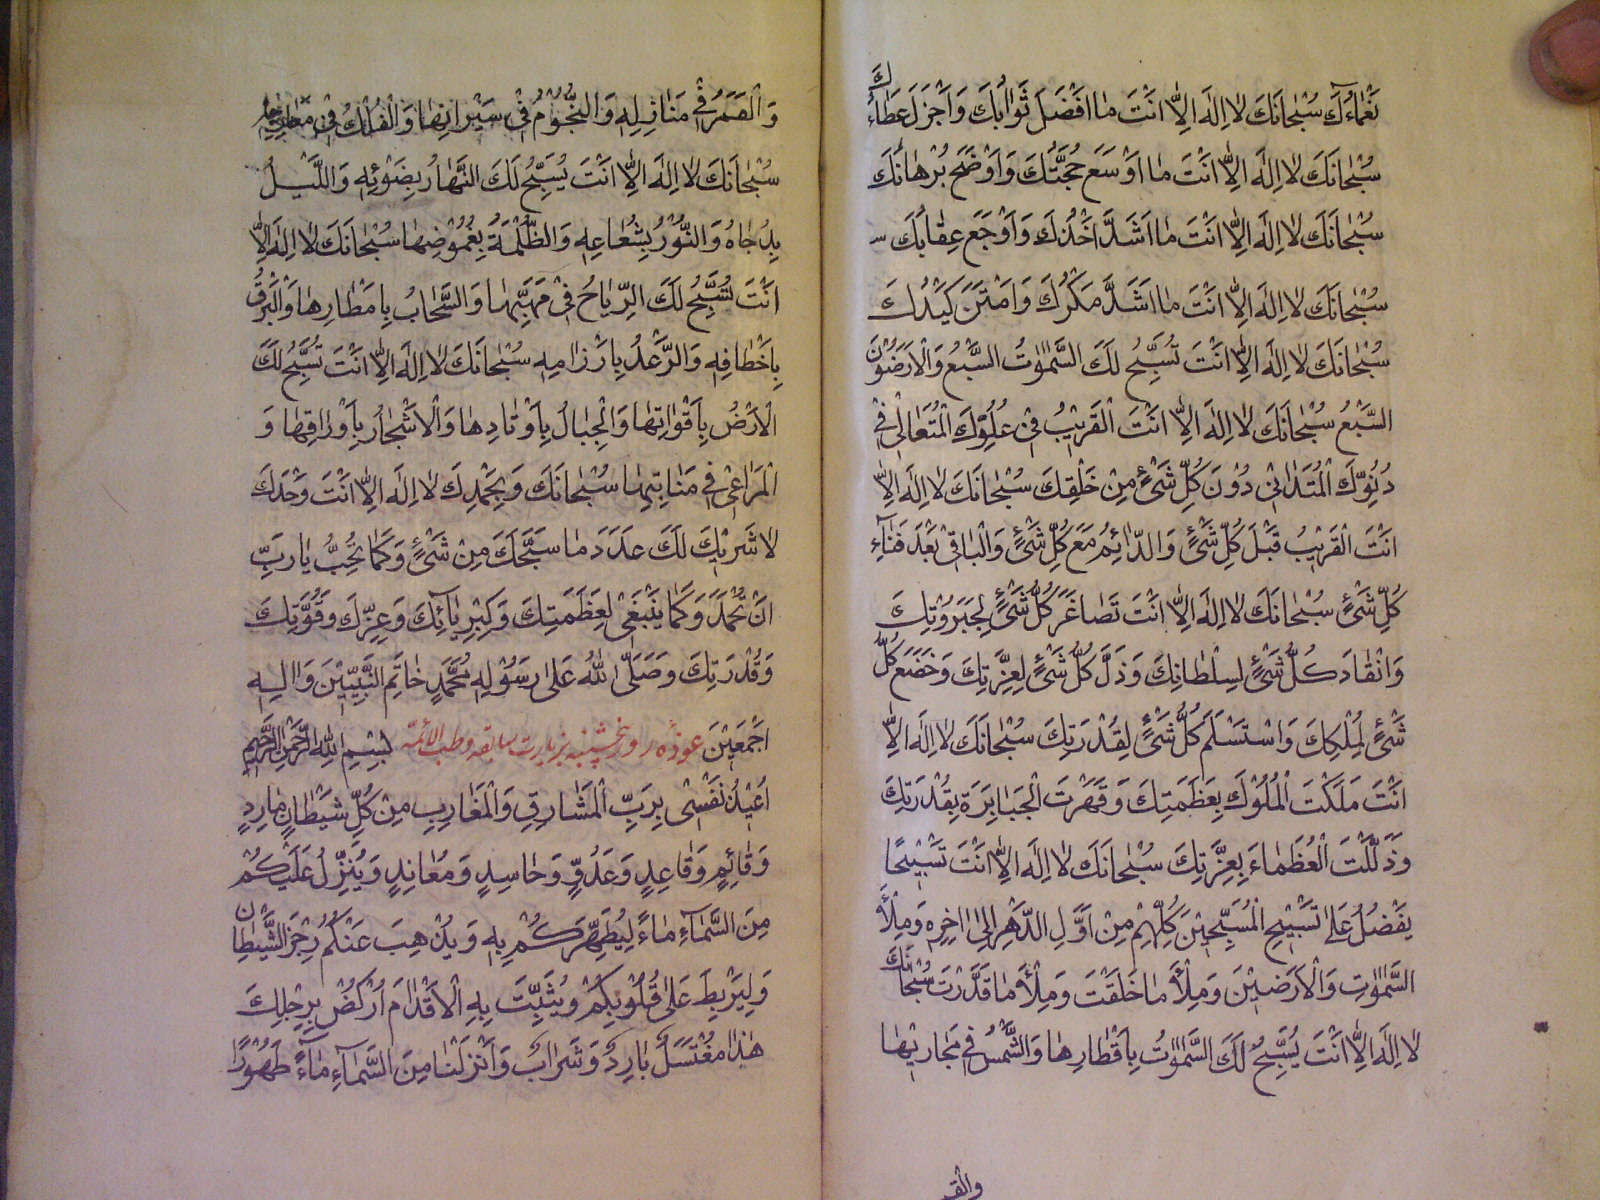 نَعْمَاءَكَ سُبْحَانَكَ لَا اِلٰهَ اِلَّا اَنْتَ مَا اَفْضَلَ ثَوَابَكَ وَاَجْزَلَ عَطَاءَكَ
سُبْحَانَكَ لَا اِلٰهَ اِلَّا اَنْتَ مَا اَوْسَعَ حُجَّتَكَ وَاَوْضَحَ بُرْهَانَكَ
سُبْحَانَكَ لَا اِلٰهَ اِلَّا اَنْتَ مَا اَشَدَّ اَخْذَكَ وَاَوْجَعَ عِقَابَكَ
سُبْحَانَكَ لَا اِلٰهَ اِلَّا اَنْتَ مَا اَشَدَّ مَكْرَكَ وَاَمْتَنَ كَيْدَكَ
سُبْحَانَكَ لَا اِلٰهَ اِلَّا اَنْتَ تُسَبِّحُ لَكَ السَّمٰوَاتُ السَّبْعُ وَالْاَرَضُوْنَ
السَّبْعُ سُبْحَانَكَ لَا اِلٰهَ اِلَّا اَنْتَ الْقَرِيْبُ فِيْ عُلُوِّكَ الْمُتَعَالِيْ فِيْ
دُنُوِّكَ الْمُتَدَانِيْ دُوْنَ كُلِّ شَيْءٍ مِنْ خَلْقِكَ سُبْحَانَكَ لَا اِلٰهَ اِلَّا
اَنْتَ الْقَرِيْبُ قَبْلَ كُلِّ شَيْءٍ وَالدَّائِمُ مَعَ كُلِّ شَيْءٍ وَالْبَاقِيْ بَعْدَ فَنَاءِ
كُلِّ شَيْءٍ سُبْحَانَكَ لَا اِلٰهَ اِلَّا اَنْتَ تَصَاغَرَ كُلُّ شَيْءٍ لِجَبَرُوْتِكَ
وَانْقَادَ كُلُّ شَيْءٍ لِسُلْطَانِكَ وَذَلَّ كُلُّ شَيْءٍ لِعِزَّتِكَ وَخَضَعَ كُلُّ
شَيْءٍ لِمُلْكِكَ وَاسْتَسْلَمَ كُلُّ شَيْءٍ لِقُدْرَتِكَ سُبْحَانَكَ لَا اِلٰهَ اِلَّا
اَنْتَ مَلَكْتَ الْمُلُوْكَ بِعَظَمَتِكَ وَقَهَرْتَ الْجَبَابِرَةَ بِقُدْرَتِكَ
وَذَلَّلْتَ الْعُظَمَاءَ بِعِزَّتِكَ سُبْحَانَكَ لَا اِلٰهَ اِلَّا اَنْتَ تَسْبِيْحًا
يَفْضُلُ عَلٰى تَسْبِيْحِ الْمُسَبِّحِيْنَ كُلِّهِمْ مِنْ اَوَّلِ الدَّهْرِ اِلٰى اٰخِرِهِ وَمِلْأَ
السَّمٰوَاتِ وَالْاَرَضِيْنَ وَمِلْأَ مَا خَلَقْتَ وَمِلْأَ مَا قَدَّرْتَ سُبْحَانَكَ
لَا اِلٰهَ اِلَّا اَنْتَ يُسَبِّحُ لَكَ السَّمٰوَاتُ بِاَقْطَارِهَا وَالشَّمْسُ فِيْ مَجَارِيْهَا
والق
وَالْقَمَرُ فِيْ مَنَازِلِهِ وَالنُّجُوْمُ فِيْ سَيْرَانِهَا وَالْفُلْكُ فِيْ مَعَارِجِهَا
سُبْحَانَكَ لَا اِلٰهَ اِلَّا اَنْتَ يُسَبِّحُ لَكَ النَّهَارُ بِضَوْئِهِ وَاللَّيْلُ
بِدُجَاهُ وَالنُّوْرُ بِشُعَاعِهِ وَالظُّلْمَةُ بِغُمُوْضِهَا سُبْحَانَكَ لَا اِلٰهَ اِلَّا
اَنْتَ تُسَبِّحُ لَكَ الرِّيَاحُ فِيْ مَهَبِّهَا وَالسَّحَابُ بِاَمْطَارِهَا وَالْبَرْقُ
بِاَخْطَافِهِ وَالرَّعْدُ بِاَرْزَامِهِ سُبْحَانَكَ لَا اِلٰهَ اِلَّا اَنْتَ تُسَبِّحُ لَكَ
الْاَرْضُ بِاَقْوَاتِهَا وَالْجِبَالُ بِاَوْتَادِهَا وَالْاَشْجَارُ بِاَوْرَاقِهَا وَ
الْمَرَاعِيْ فِيْ مَنَابِتِهَا سُبْحَانَكَ وَبِحَمْدِكَ لَا اِلٰهَ اِلَّا اَنْتَ وَحْدَكَ
لَا شَرِيْكَ لَكَ عَدَدَ مَا سَبَّحَكَ مِنْ شَيْءٍ وَكَمَا تُحِبُّ يَا رَبِّ
اَنْ تُحْمَدَ وَكَمَا يَنْبَغِيْ لِعَظَمَتِكَ وَكِبْرِيَائِكَ وَعِزِّكَ وَقُوَّتِكَ
وَقُدْرَتِكَ وَصَلَّى اللّٰهُ عَلٰى رَسُوْلِهِ مُحَمَّدٍ خَاتَمِ النَّبِيِّيْنَ وَاٰلِهِ
اَجْمَعِيْنَ عوذهٔ روز پنجشنبه بزیارت سابقه وطب الائمّه بِسْمِ اللّٰهِ الرَّحْمٰنِ الرَّحِيْمِ
اُعِيْذُ نَفْسِيْ بِرَبِّ الْمَشَارِقِ وَالْمَغَارِبِ مِنْ كُلِّ شَيْطَانٍ مَارِدٍ
وَقَائِمٍ وَقَاعِدٍ وَعَدُوٍّ وَحَاسِدٍ وَمُعَانِدٍ وَيُنَزِّلُ عَلَيْكُمْ
مِنَ السَّمَاءِ مَاءً لِيُطَهِّرَكُمْ بِهِ وَيُذْهِبَ عَنْكُمْ رِجْزَ الشَّيْطَانِ
وَلِيَرْبِطَ عَلٰى قُلُوْبِكُمْ وَيُثَبِّتَ بِهِ الْاَقْدَامَ اُرْكُضْ بِرِجْلِكَ
هٰذَا مُغْتَسَلٌ بَارِدٌ وَشَرَابٌ وَاَنْزَلْنَا مِنَ السَّمَاءِ مَاءً طَهُوْرًا